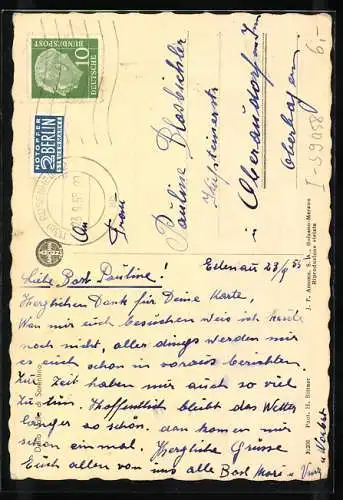 10
DEUTSCHE
BUNDESPOST
NOTOPFER
2 BERLIN
STEUERMARKE
An
Frau
Pauline
Kufsteinerstr
Oberaudorf
I-S9058
6,-
Erlenau 23/9 55
Liebe Basl Pauline!
Herzlichen Dank für Deine Karte,
Wan mir euch besuchen weis ich heute
noch nicht, aller dings werden mir
es euch schon in voraus berichten.
Zur Zeit haben mir auch so viel
zu tun. Hoffentlich bleibt das Wetter
länger so schön. dan komen mir
schon einmal. Herzliche Grüsse
Euch allen von uns alle Basl Mari u
J. F. Amonn, S. A., Bolzano-Merano
Riproduzione vietata
Foto H.